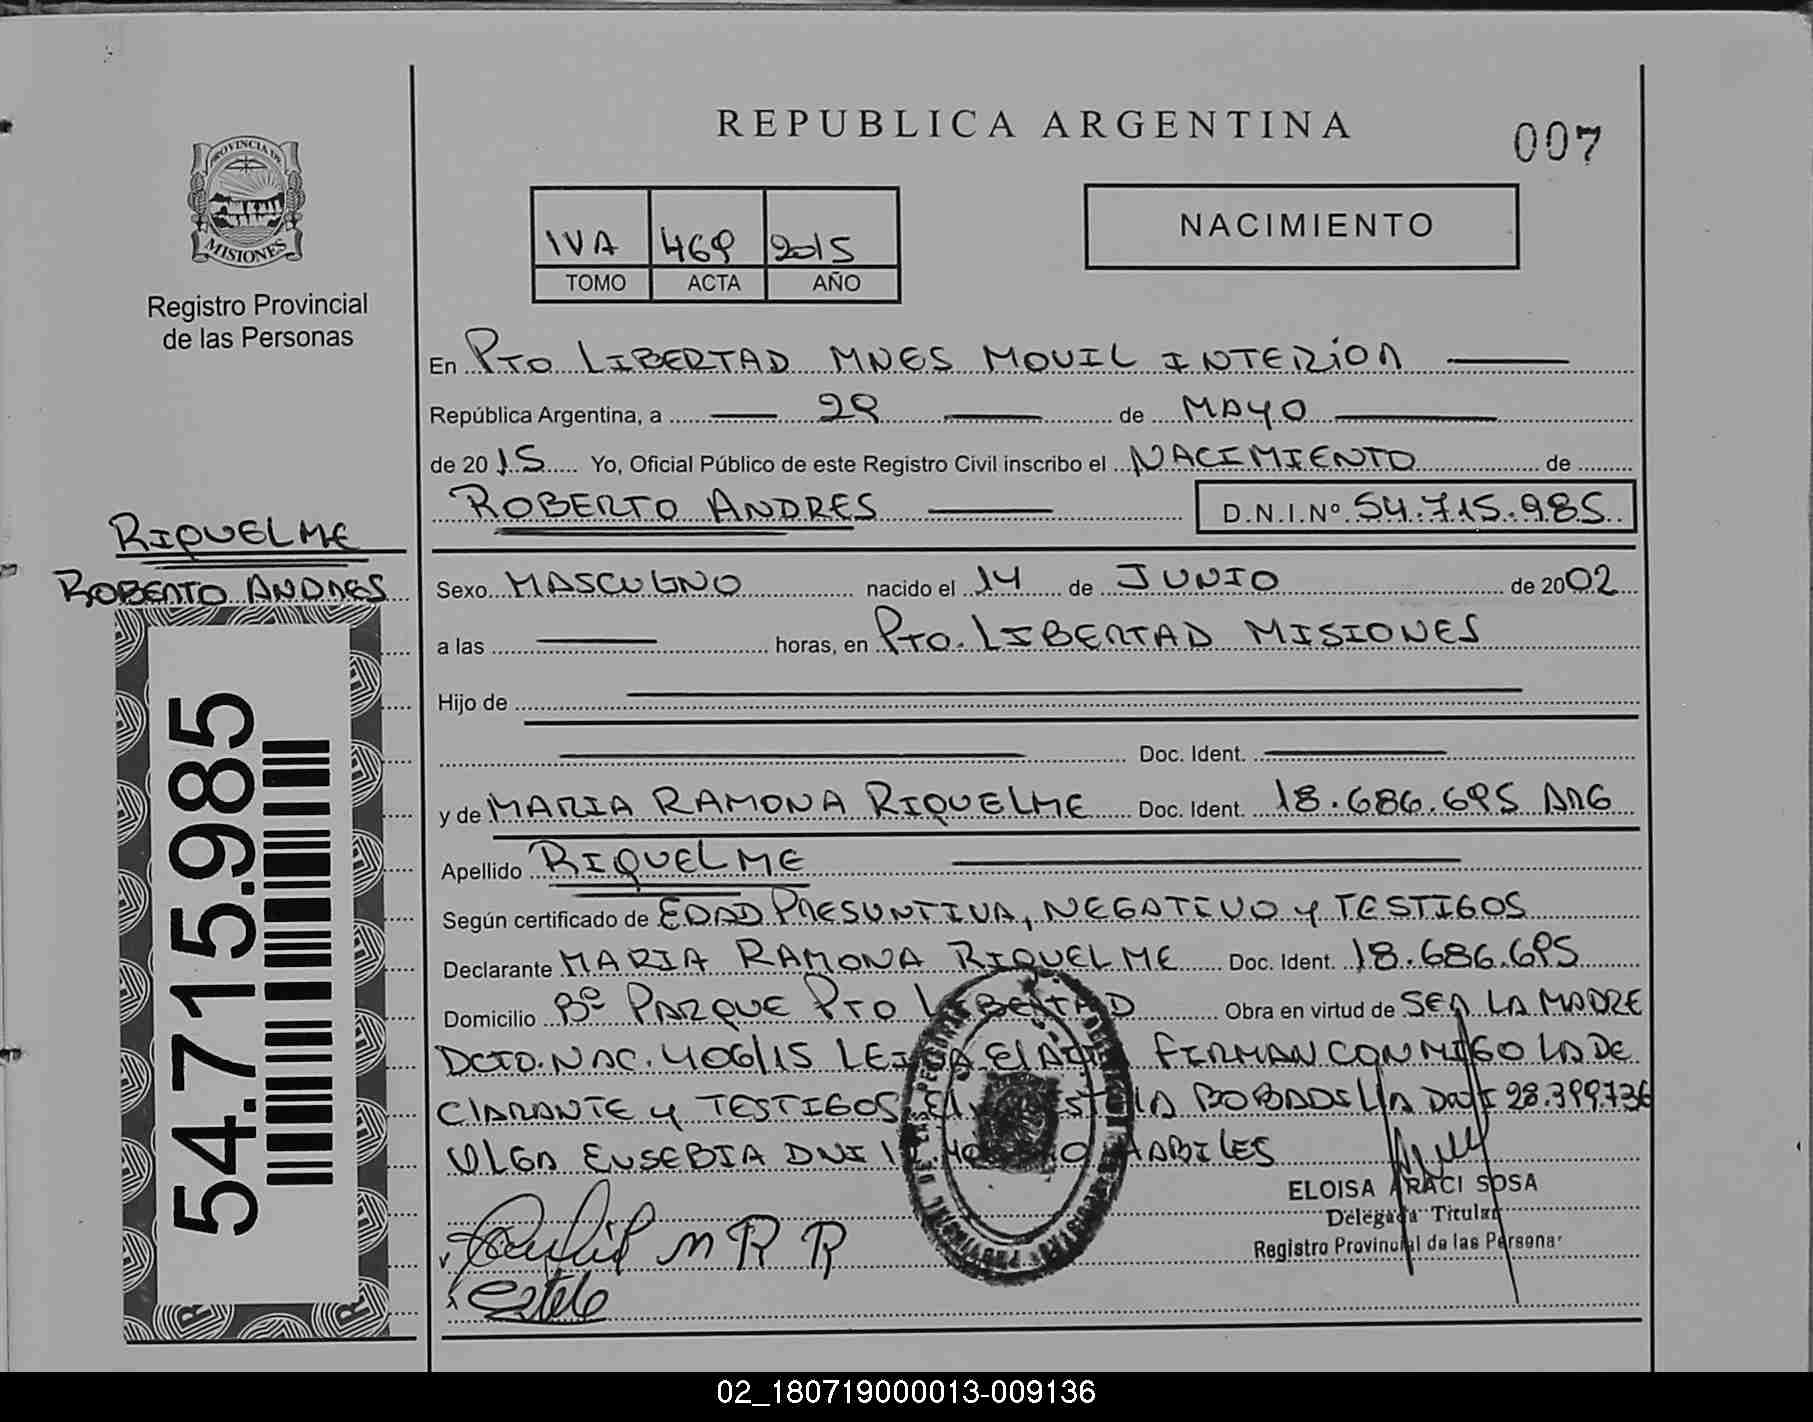 REPUBLICA ARGENTINA
007
PROVINCIA DE
MISIONES
Registro Provincial
de las Personas
IVA 469 2015
TOMO ACTA AÑO
NACIMIENTO
En PTO LIBERTAD MNES MOVIL INTERIOR
República Argentina, a 29 de MAYO
de 2015 Yo, Oficial Público de este Registro Civil inscribo el NACIMIENTO de
ROBERTO ANDRES D.N.I.Nº 54.715.985
RIQUELME
ROBERTO ANDRES
54.715.985
Sexo MASCULINO nacido el 14 de JUNIO de 2002
a las horas, en PTO. LIBERTAD MISIONES
Hijo de
Doc. Ident.
y de MARIA RAMONA RIQUELME Doc. Ident. 18.686.695 ARG
Apellido RIQUELME
Según certificado de EDAD PRESUNTIVA, NEGATIVO y TESTIGOS
Declarante MARIA RAMONA RIQUELME Doc. Ident. 18.686.695
Domicilio Bº PARQUE PTO LIBERTAD Obra en virtud de SER LA MADRE
DCTO. NAC. 406/15 LEIDA El ACTA FIRMAN CONMIGO LA DE
CLARANTE y TESTIGOS BOBADILLA DNI 28.399.736
OLGA EUSEBIA DNI HABILES
ELOISA ARACI SOSA
Delegada Titular
Registro Provincial de las Personas
M R R
02_180719000013-009136